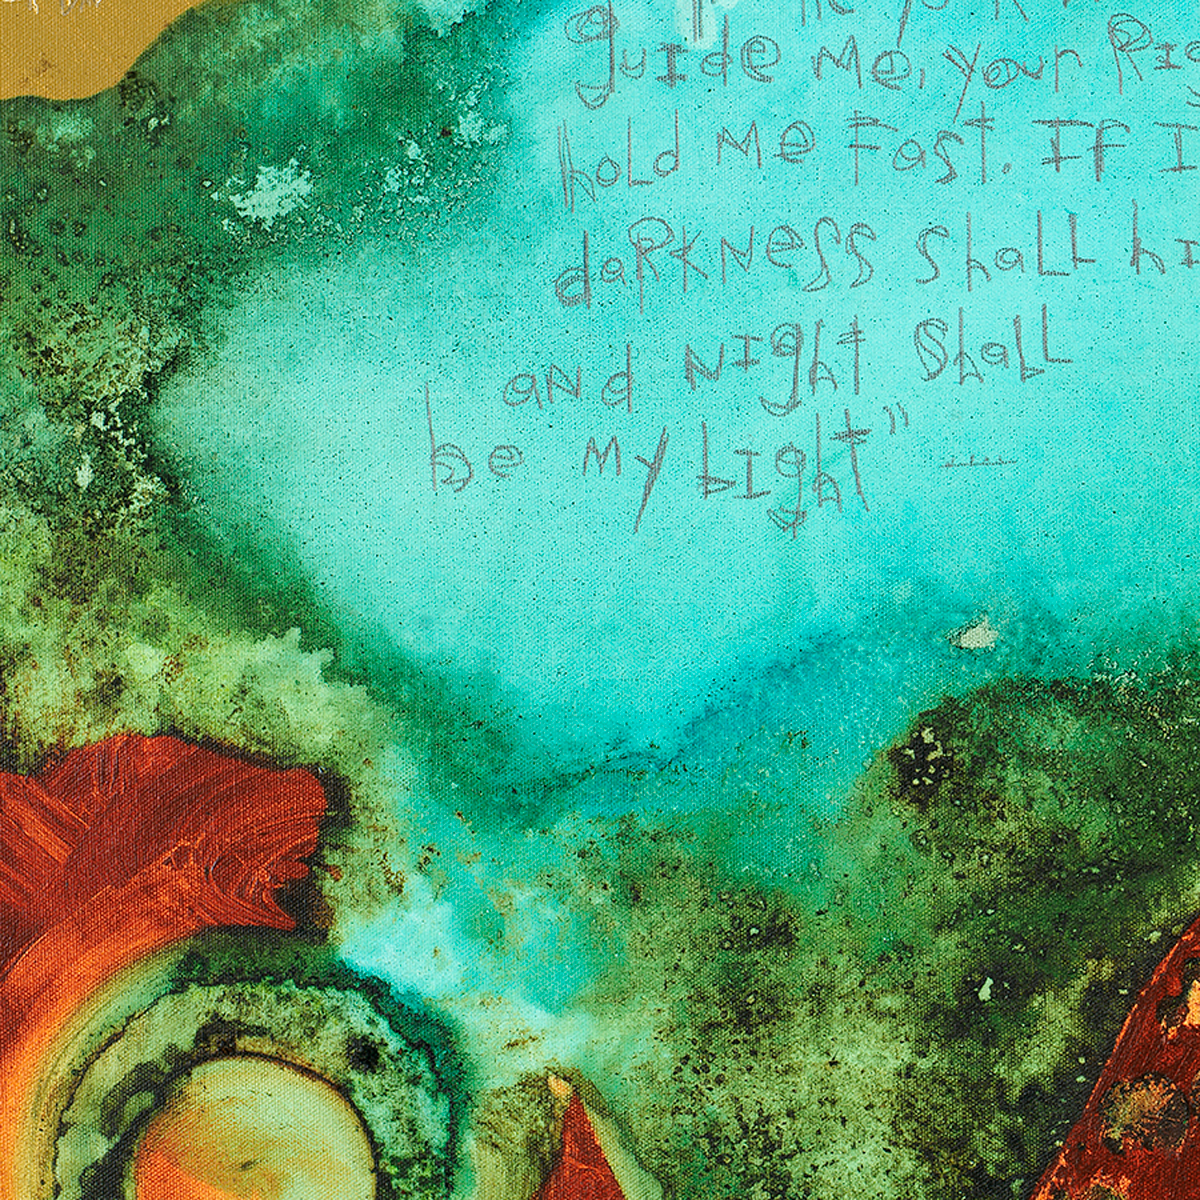 guide Me, your Rig
hold Me Fast. If I
darkNess shall hi
and Night Shall
be My Light"